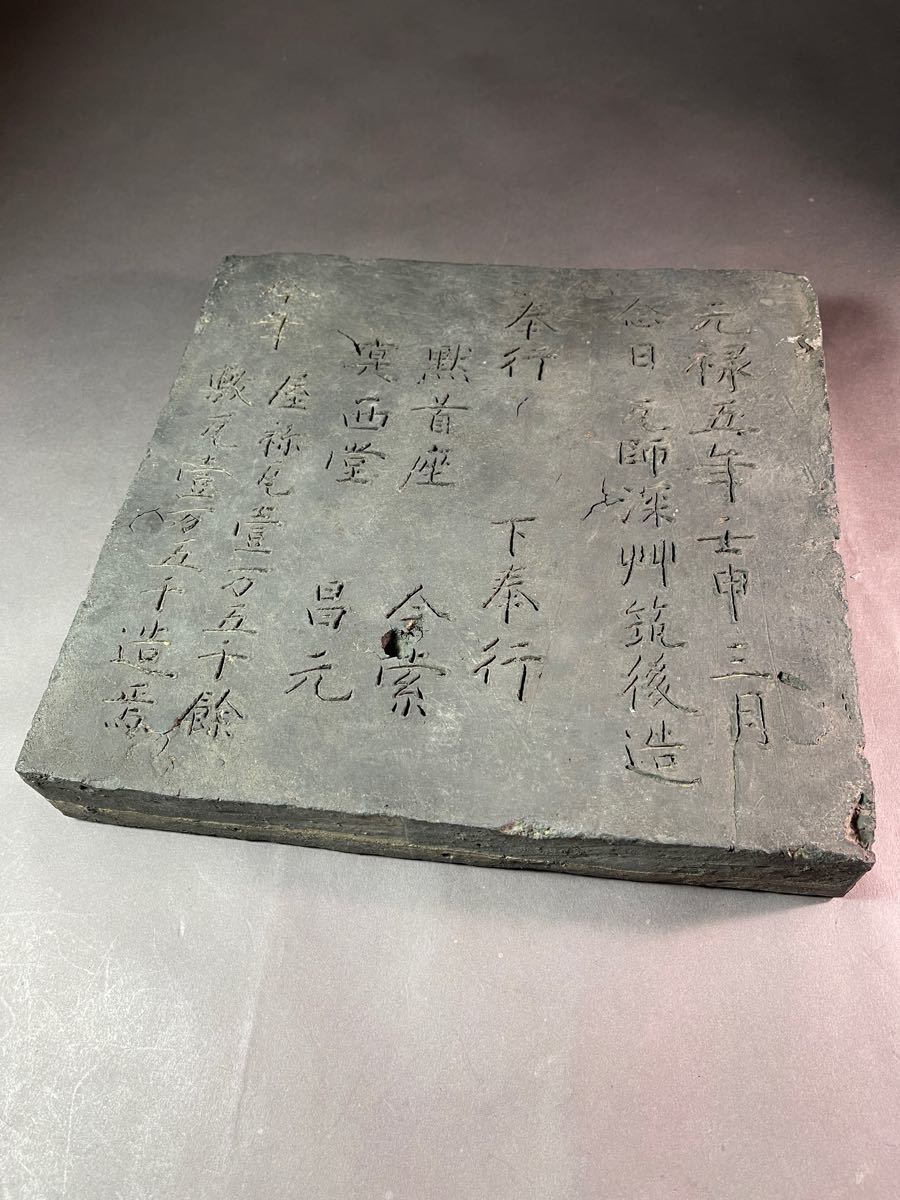 元禄五年壬申三月
念日 瓦師深艸筑後造
奉行 下奉行
黙首座 令索
莫西堂 昌元
今年 屋祢瓦壹万五千餘
敷瓦壹万五千造焉